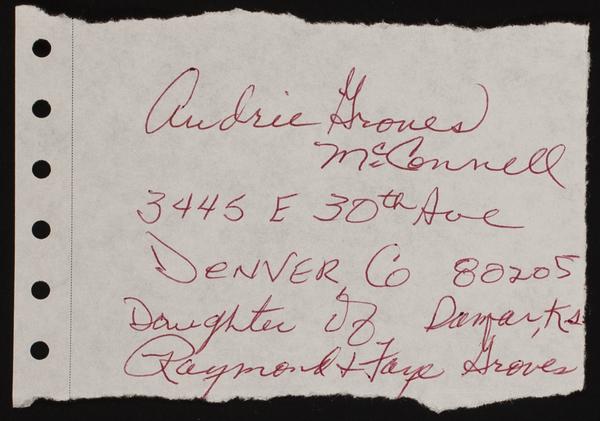 Audrie Groves
McConnell
3445 E 30th Ave
DENVER, CO 80205
Daughter of Damar, Ks
Raymond & Faye Groves